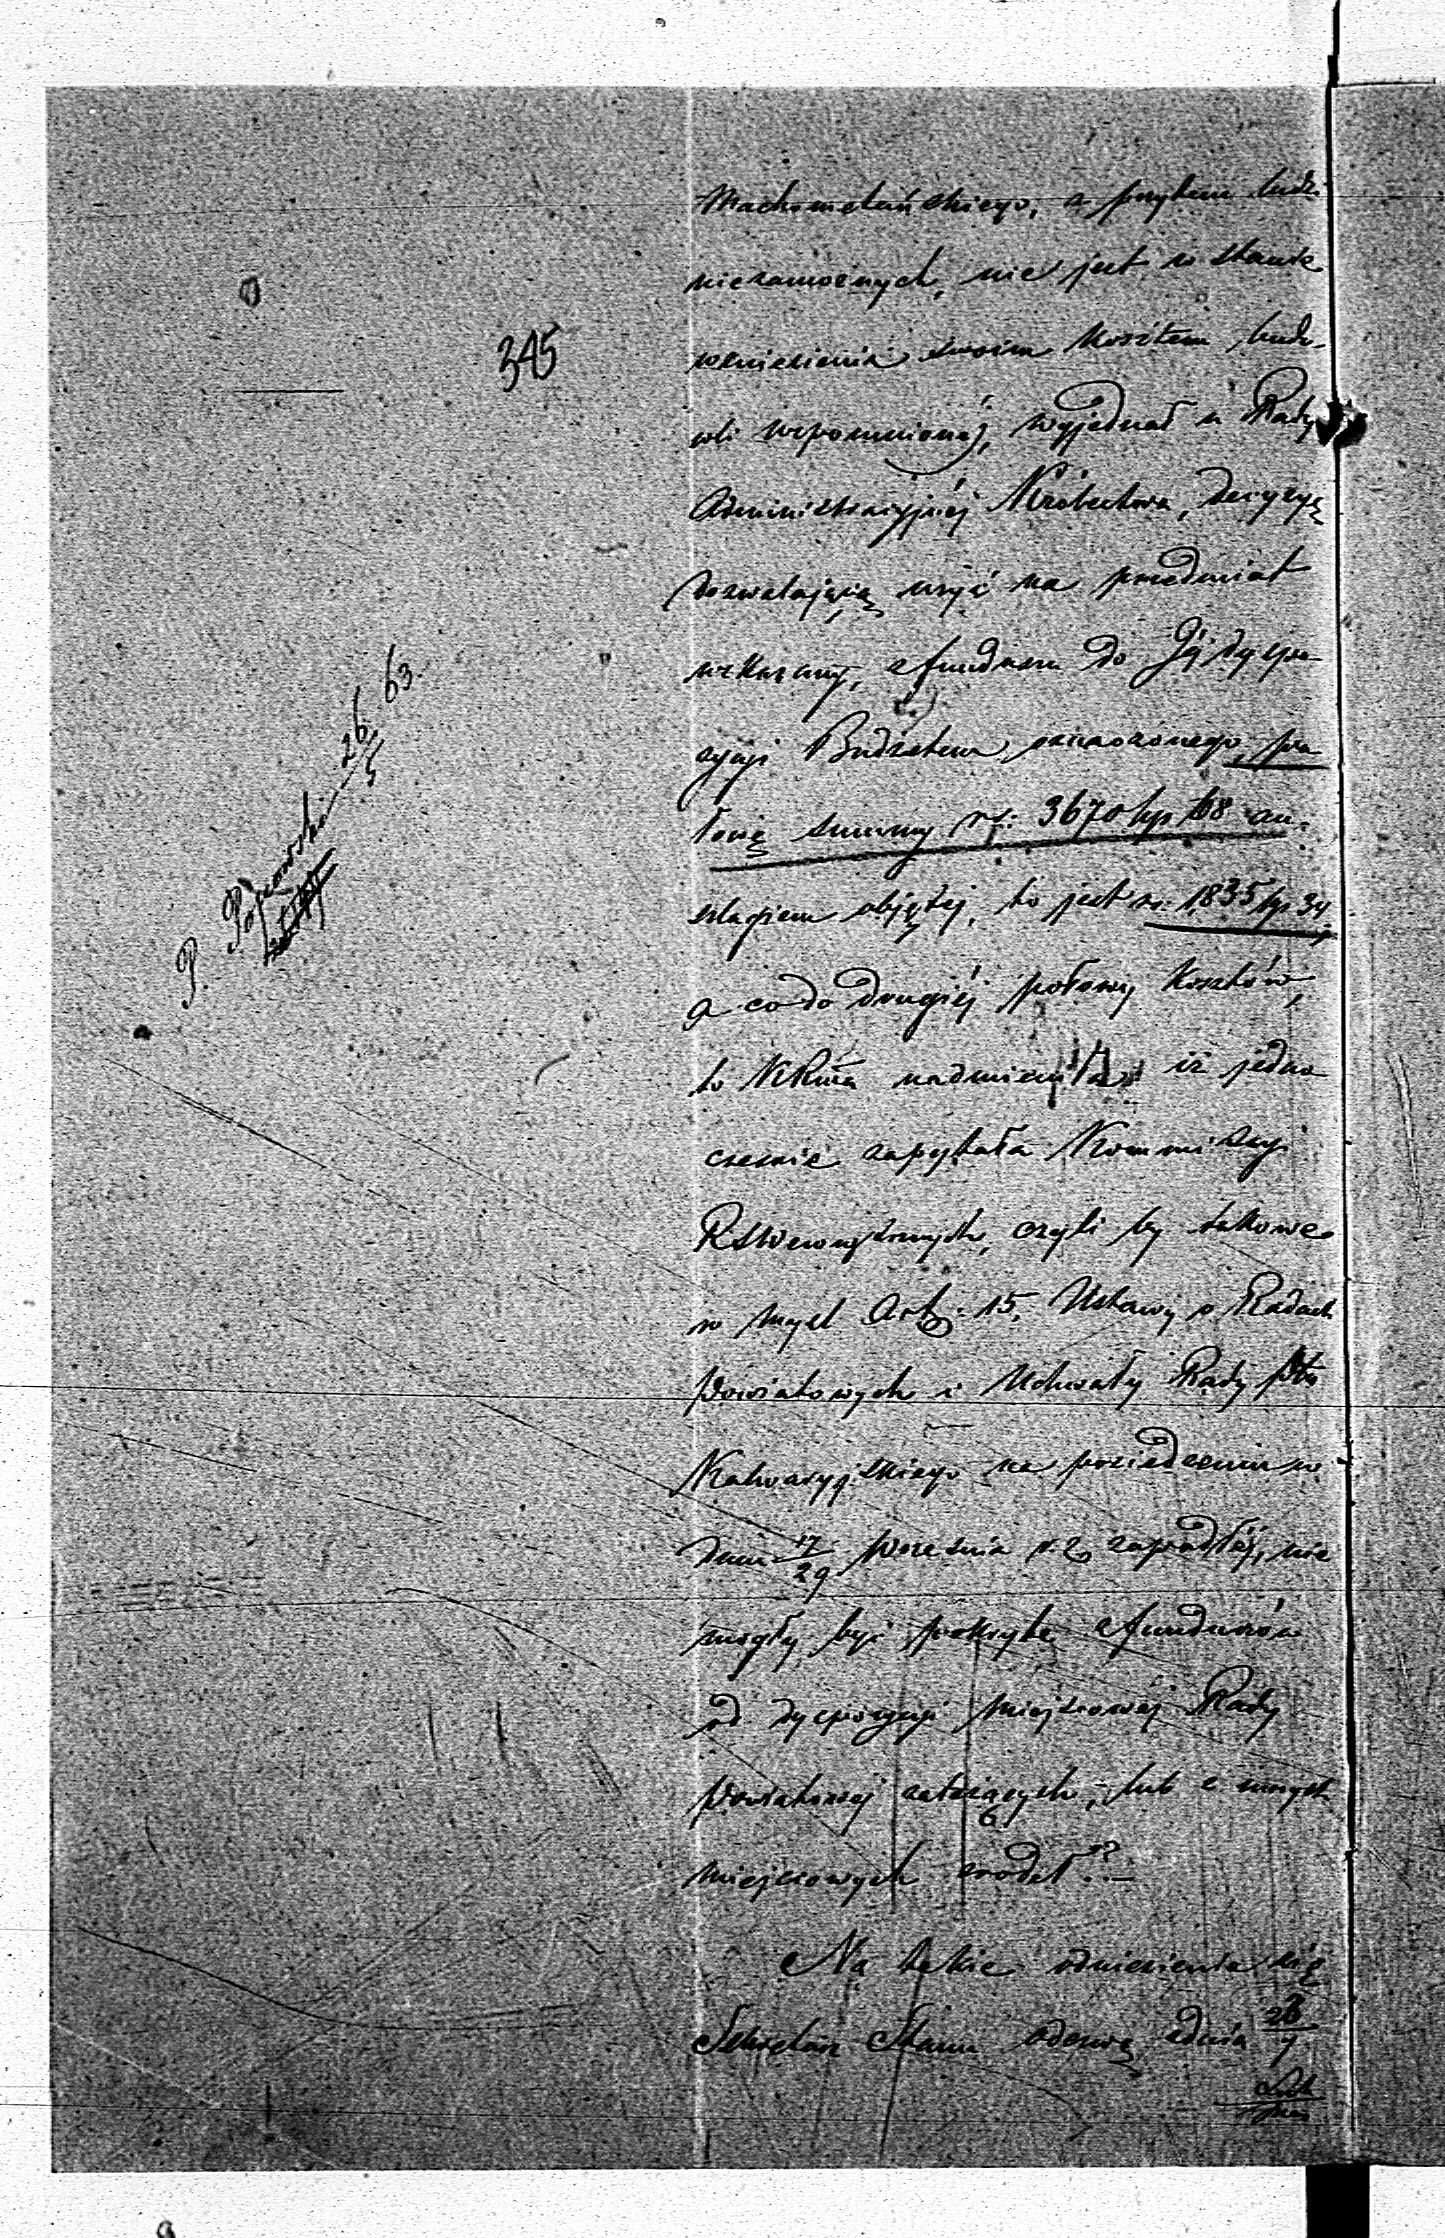 345
P. Popowski 26/5 63.
Machometańskiego, a przytem ludzi
niezamożnych, nie jest w stanie
wzniesienia swoim kosztem budo-
wli wspomnionéj, wyjednał u Rady
Administracyjnéj Królestwa, decyzyę
dozwalającą użyć na przedmiot
wskazany, z funduszu do Jéj dyspo-
zycyi Budżetem oznaczonego, po-
łowę summy rs: 3670 kp 68 an-
szlagiem objętéj, to jest rs: 1835 kp 34,
a co do drugiéj połowy kosztów,
to KRząda nadmieniła iż jedno
cześnie zapytała Kommissyi
RSWewnętrznych, czyli by takowe
w myśl Art: 15, Ustawy o Radach
Powiatowych i Uchwały Rady Ptu
Kalwaryjskiego na posiedzeniu w
dniu 17/29 Września r. z. zapadłéj, nie
mogły być pokryte z funduszów
od dyspozycyi miejscowéj Rady
Powiatowéj zależących, lub z innych
miejscowych źródeł?
Na takie odniesienie się
Sekretarz Stanu odezwą z dnia